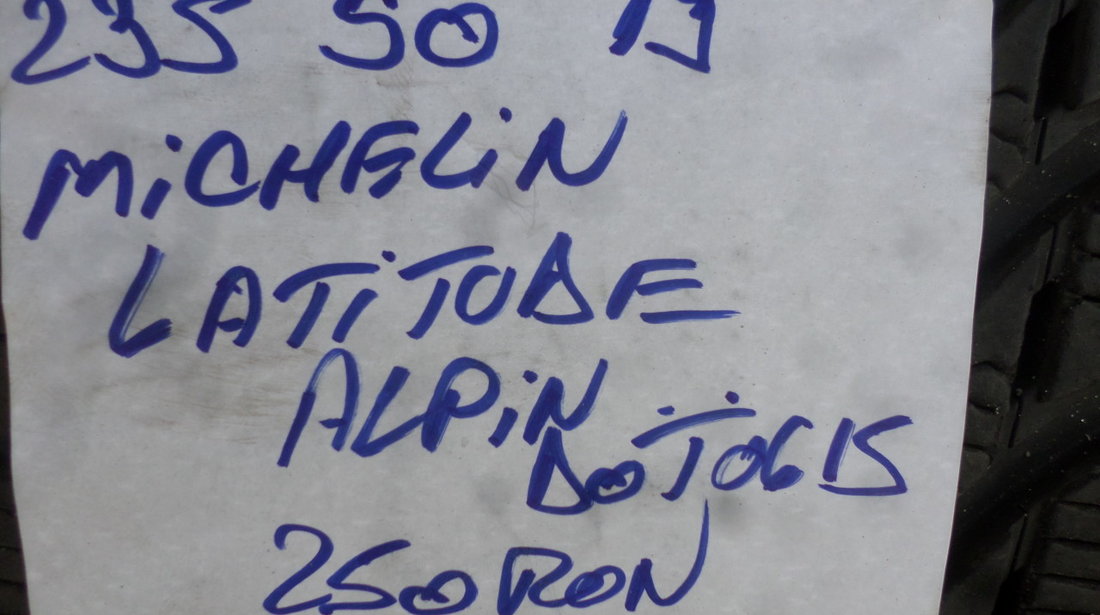 235 50 19
MiCHELiN
LATiTUDE
ALPiN
DOT0615
250 RON